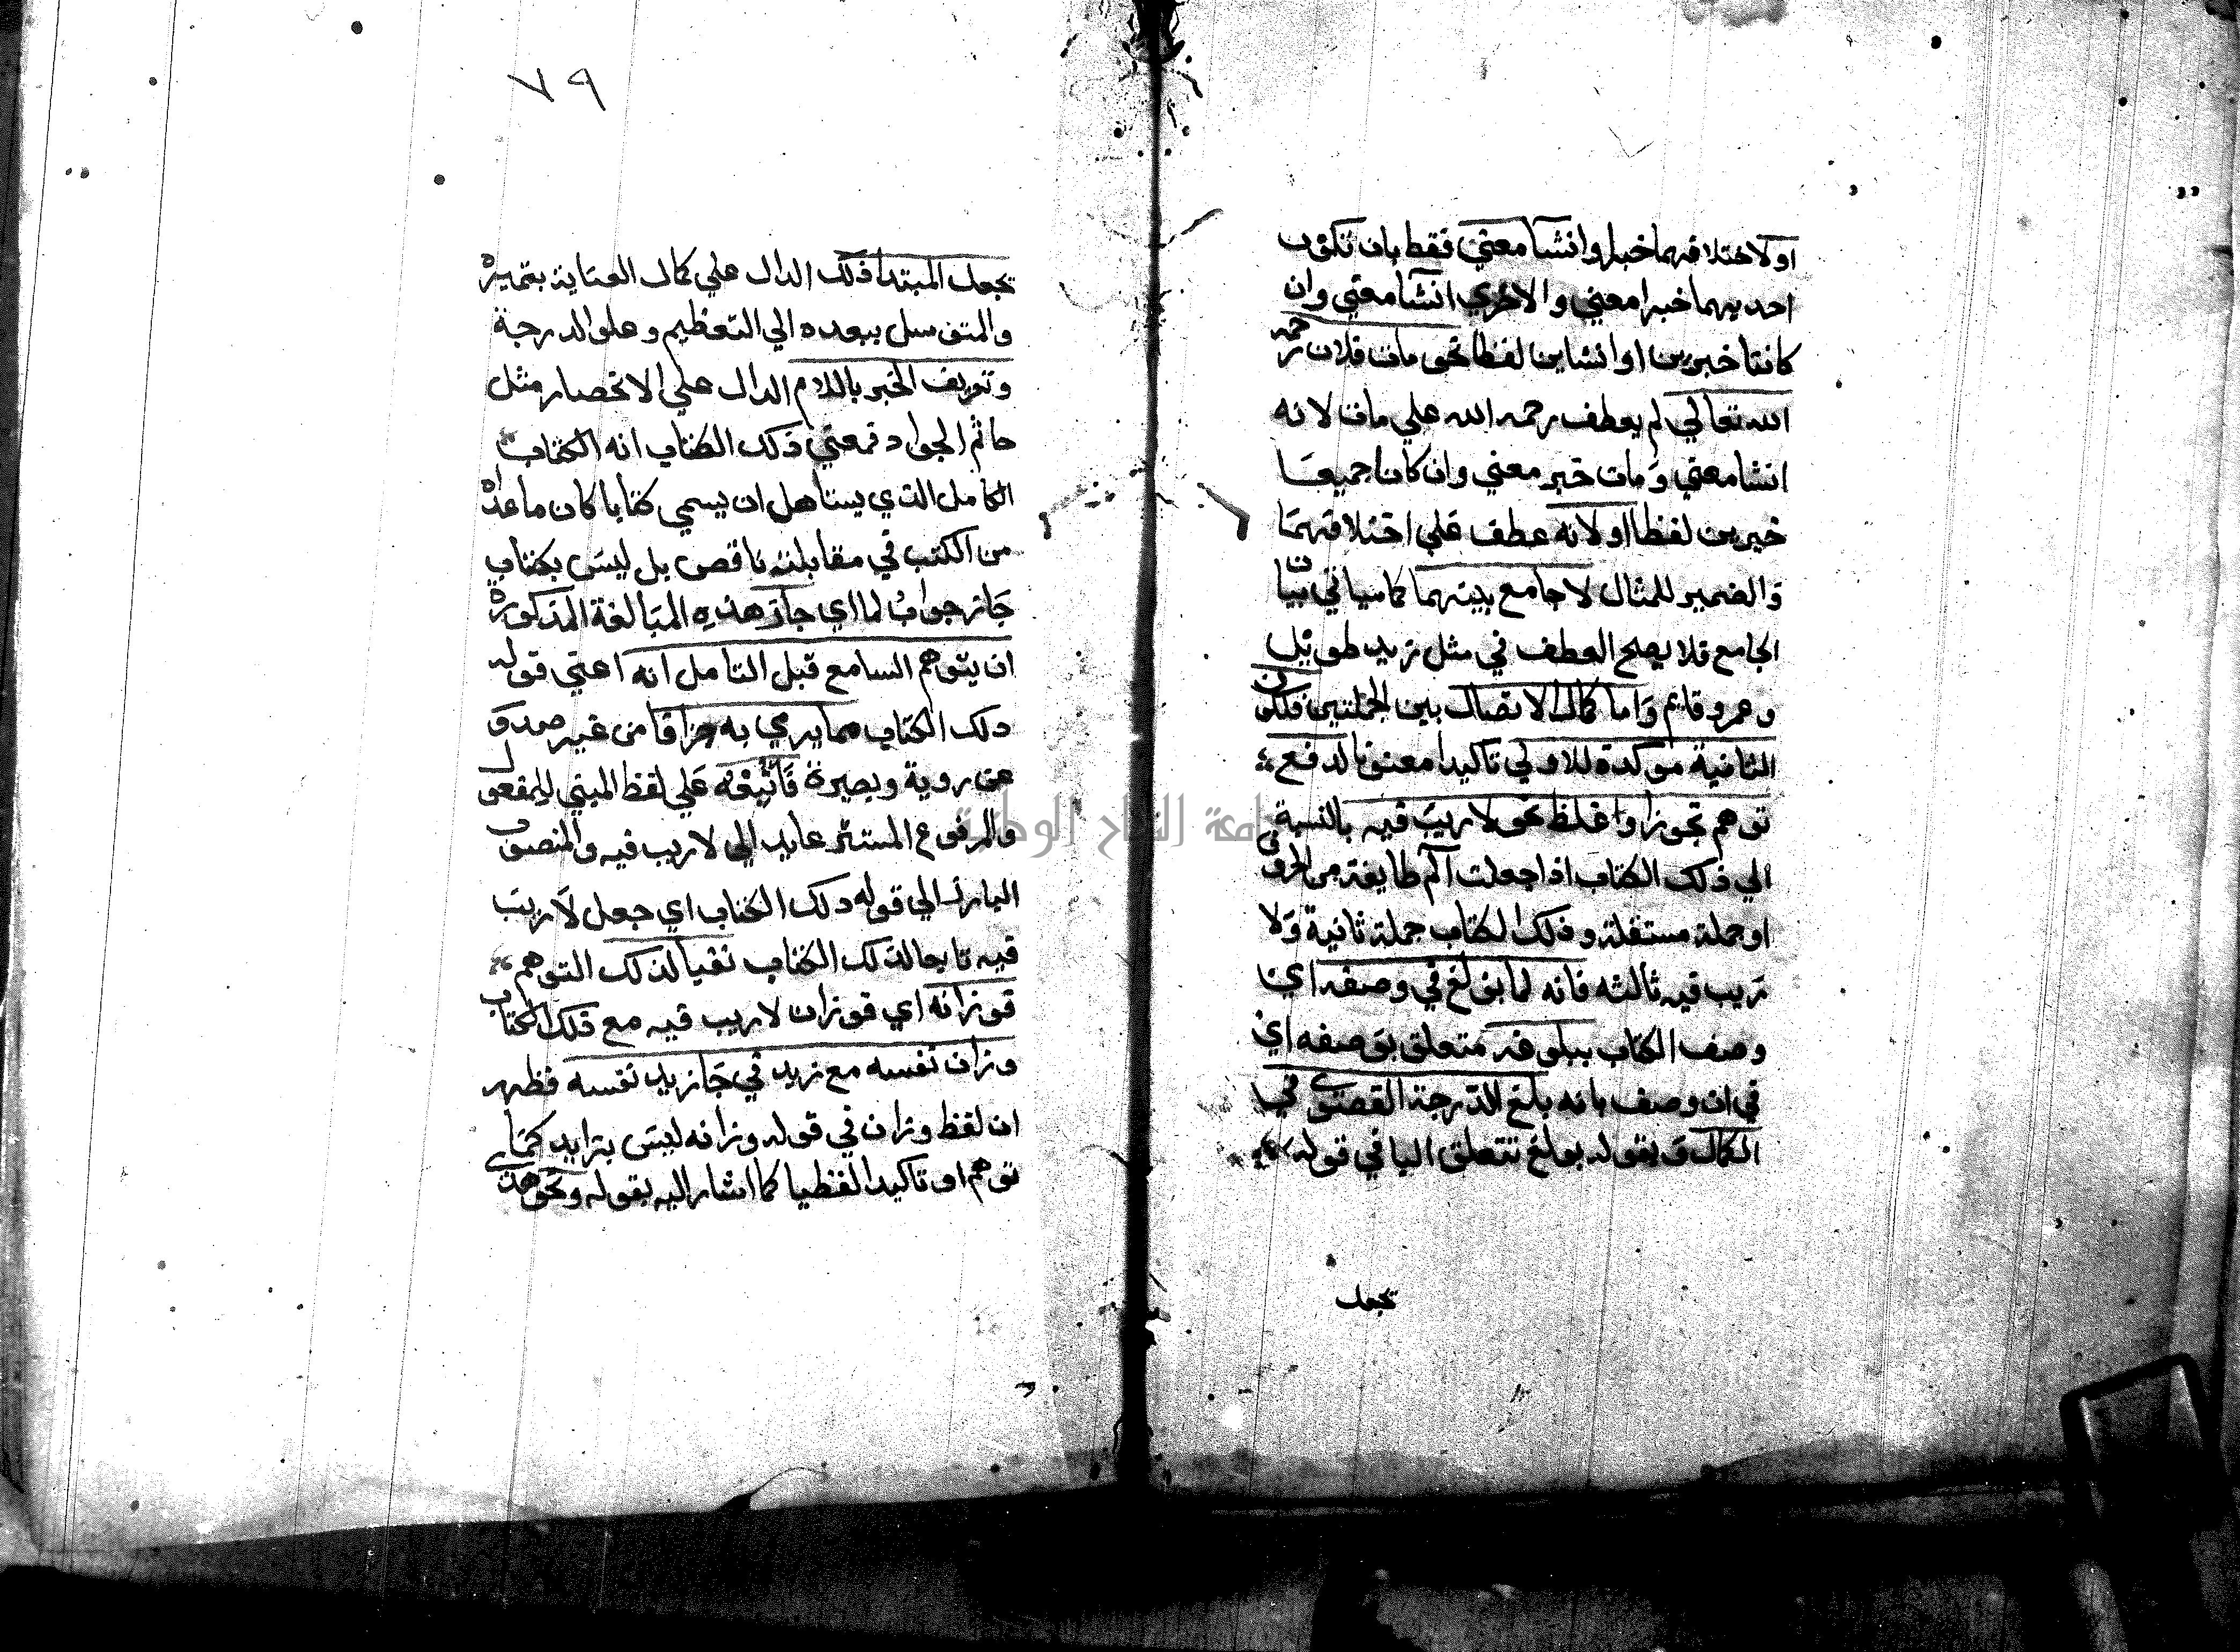 او لاختلافهما خبرا وانشا معني فقط بان تكون
احديهما خبرا معني والاخري انشا معني وان
كانتا خبريين او انشاين لفظا نحو مات فلان رحمه
الله تعالي لم يعطف رحمه الله علي مات لانه
انشا معني ومات خبر معني وان كانا جميعا
خبرين لفظا او لانه عطف علي اختلافهما
والضمير للمثال لا جامع بينهما كما سياتي بيان
الجامع فلا يصلح العطف في مثل زيد طويل
وعمرو قايم واما كمال الاتصال بين الجملتين فلكون
الثانية موكدة للاولي تاكيدا معنويا لدفع
توهم تجوز او غلظ نحو لا ريب فيه بالنسبة
الي ذلك الكتاب اذا جعلت آلم طايفة من الحروف
او جملة مستقلة وذلك الكتاب جملة ثانية ولا
ريب فيه ثالثه فانه لما بولغ في وصفه اي
وصف الكتاب ببلوغه متعلق بوصفه اي
في ان وصف بانه بلغ الدرجة القصوي في
الكمال وبقوله بولغ تتعلق اليا في قوله
بجعل
٧٩
بجعل المبتدا ذلك الدال علي كمال العناية بتميزه
والتوسل ببعده الي التعظيم وعلو الدرجة
وتعريف الخبر باللام الدال علي الانحصار مثل
حاتم الجواد فمعني ذلك الكتاب انه الكتاب
الكامل الذي يستاهل ان يسمي كتابا كان ما عداه
من الكتب في مقابلته ناقص بل ليس بكتاب
جاز جواب لما اي جاز هذه المبالغة المذكورة
ان يتوهم السامع قبل التامل انه اعني قوله
ذلك الكتاب مما يرمي به جزافا من غير صدوق
عن روية وبصيرة فاتبعه علي لفظ المبني للمفعول
والمرفوع المستتر عايد الي لا ريب فيه والمنصوب
البارز الي قوله ذلك الكتاب اي جعل لا ريب
فيه تابعا لذلك الكتاب نفيا لذلك التوهم
فوزانه اي فوزان لا ريب فيه مع ذلك الكتاب
وزان نفسه مع زيد في جا زيد نفسه فظهر
ان لفظ وزان في قوله وزانه ليس بزايد كما
توهم او تاكيدا لفظيا كما اشار اليه بقوله ونحو هدي
جامعة النجاح الوطنية